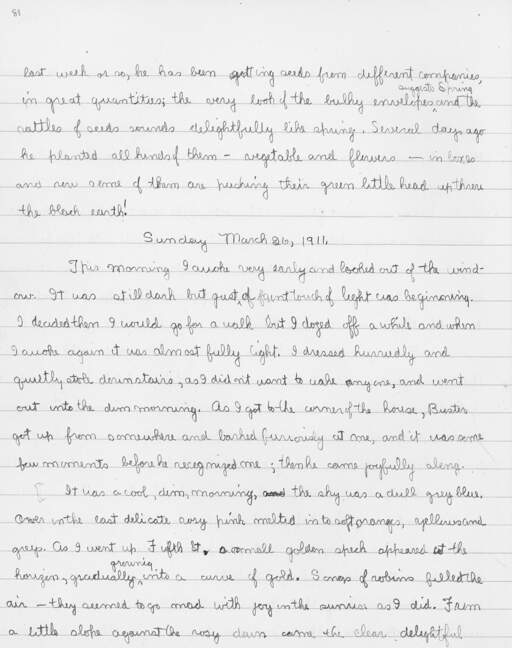 81
last week or so, he has been getting seeds from different companies,
suggests Spring
in great quantities; the very look of the bulky envelopes and the
rattles of seeds sounds delightfully like spring. Several days ago
he planted all kinds of them – vegetable and flowers — in boxes
and now some of them are pushing their green little head up thru
the black earth!
Sunday March 26, 1911.
This morning I awoke very early and looked out of the wind-
ow. It was still dark but just of faint touch of light was beginning.
I decided then I would go for a walk but I dozed off a while and when
I awoke again it was almost fully light. I dressed hurriedly and
quietly stole downstairs, as I did n't want to wake anyone, and went
out into the dim morning. As I got to the corner of the house, Buster
got up from somewhere and barked furiously at me, and it was some
few moments before he recognized me; then he came joyfully along.
[ It was a cool, dim, morning, the sky was a dull grey blue.
Over in the east delicate rosy pink melted into soft oranges, yellows and
greys. As I went up Fifth St. a small golden speck appeared at the
growing
horizon, gradually into a curve of gold. Songs of robins filled the
air – they seemed to go mad with joy in the sunrise as I did. From
a little slope against the rosy dawn came the clear delightful